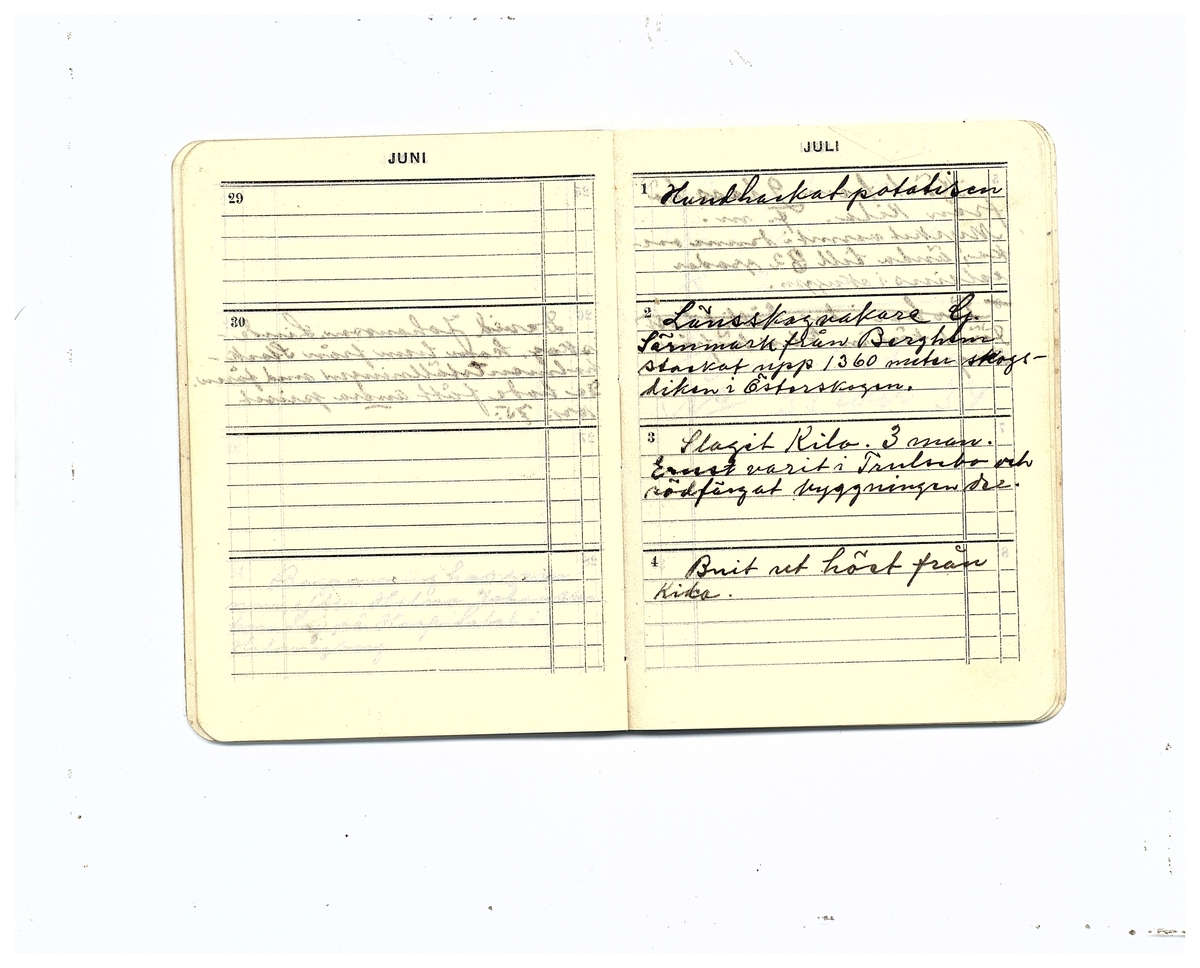 JUNI
29
30
JULI
1 Handhackat potatisen
2 Länsskogvakare G.
Särnmark från Berghem
stackat upp 1360 meter skogs-
diken i Österskogen.
3 Slagit Kila. 3 man.
Ernst varit i Trulsebo och
rödfärgat byggningen der.
4 ut höst från
Kila.